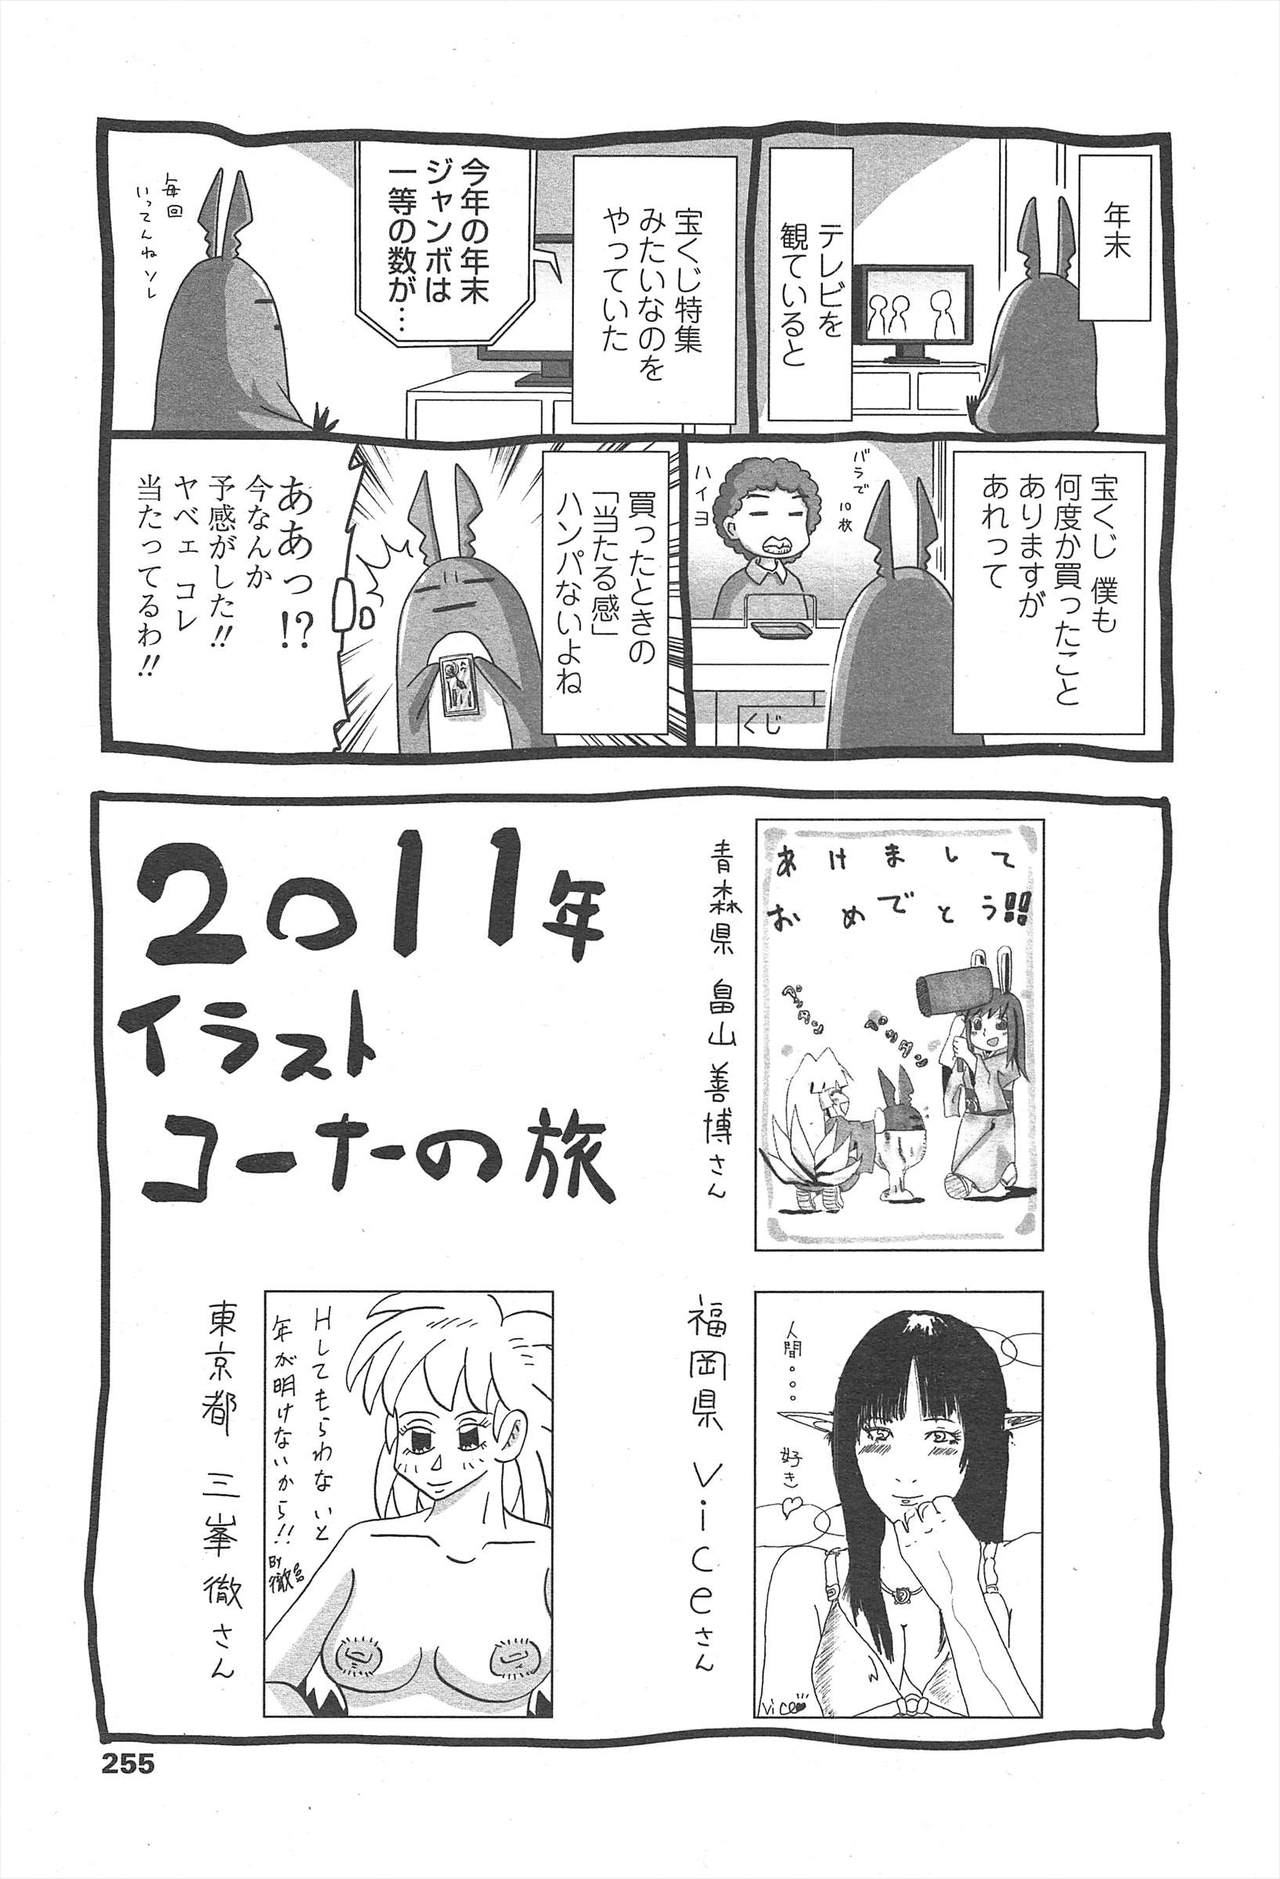 年末
テレビを
観ていると
宝くじ特集
みたいなのを
やっていた
今年の年末
ジャンボは
一等の数が…
毎回
いってんね ソレ
宝くじ 僕も
何度か買ったこと
ありますが
あれって
バラで10枚
ハイヨ
くじ
買ったときの
「当たる感」
ハンパないよね
ああっ!?
今なんか
予感がした!!
ヤベェ コレ
当たってるわ!!
2011年
イラスト
コーナーの旅
あけまして
おめでとう!!
ペッタン
ペッタン
青森県 畠山善博さん
人間。。。
好き♡
vice
福岡県 viceさん
Hしてもらわないと
年が明けないから!!
BY
東京都 三峯徹さん
255